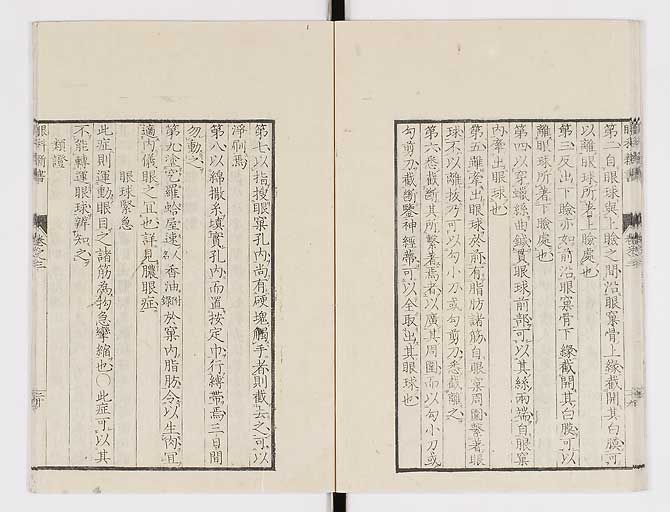 第二自眼球與上瞼之間沿眼窠骨上緣截開其白膜可
以離眼球所著上瞼處也
第三反出下瞼亦如前沿眼窠骨下緣截開其白膜可以
離眼球所著下瞼處也
第四以穿蠟絲曲鍼貫眼球前部可以其絲兩端自眼窠
内牽出眼球也
第五雖牽出眼球於前有脂肪諸筋自眼窠周圍繫著眼
球不以離拔方可以勾小刀或勾剪刀悉截離之
第六悉截斷其所繫著焉者以廣其周圍而以勾小刀或
勾剪刀截斷鑒神經蒂可以全取出其眼球也
第七以指搜眼窠孔内尚有硬塊觸手者則截去之可以
淨刷焉
第八以綿撒糸填實孔内而置按定巾行縛帶焉三日間
勿動之
第九塗乞羅蛤屋速人名香油附録於窠内脂肪令以生肉宜
適内儀眼之宜也詳見膿眼症
眼球緊急
此症則運動眼目之諸筋為拘急攣縮也○此症可以其
不能轉運眼球辨知之
類證
眼科新書
卷之三